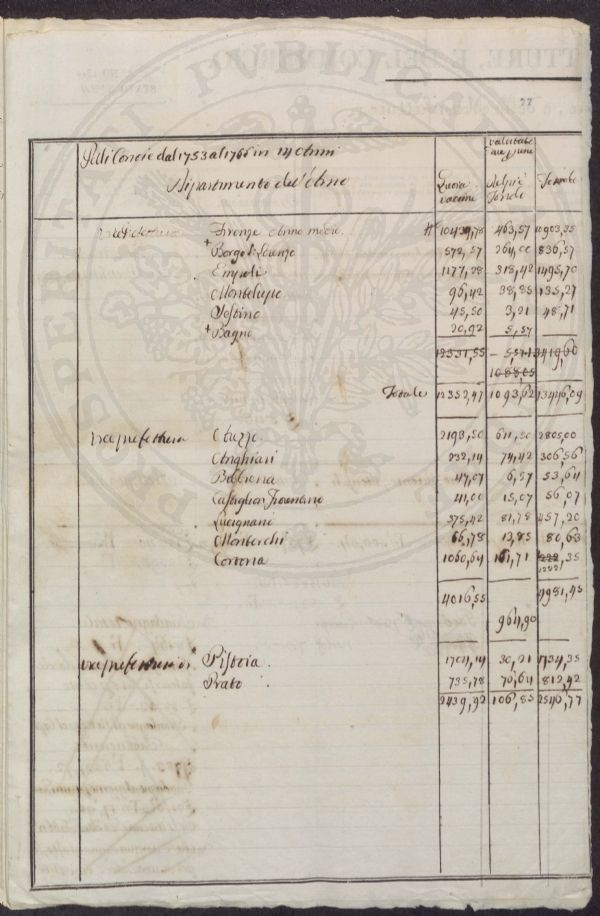 TURE, E DEL COMMERCIO
PROSPERITATI PUBLICAE
27
Pelli Concie dal 1753 al 1766 in 14 Anni
Dipartimento dell'Arno
Quoia vaccine
valutate
Totale
Firenze Anno medio # 10439,78 463,57 10903,35
+ Borgo S. Lorenzo 572,57 264,00 836,57
Empoli 1177,28 318,42 1495,70
Montelupo 96,42 38,85 135,27
45,50 3,21 48,71
+ Bagno 20,92 5,57
12331,55 13419,60
Totale 12352,47 1093,62 13446,09
viceprefettura Arezzo 2193,50 611,50 2805,00
Anghiari 232,14 74,42 306,56
Bibbiena 47,07 6,57 53,64
Castiglion Fiorentino 41,00 15,07 56,07
Lucignano 375,42 81,78 457,20
Monterchi 66,78 13,85 80,63
Cortona 1060,64 161,71
4016,55 4981,45
964,90
viceprefettura di Pistoia 1704,14 30,21 1734,35
Prato 735,78 76,64 812,42
2439,92 106,85 2546,77